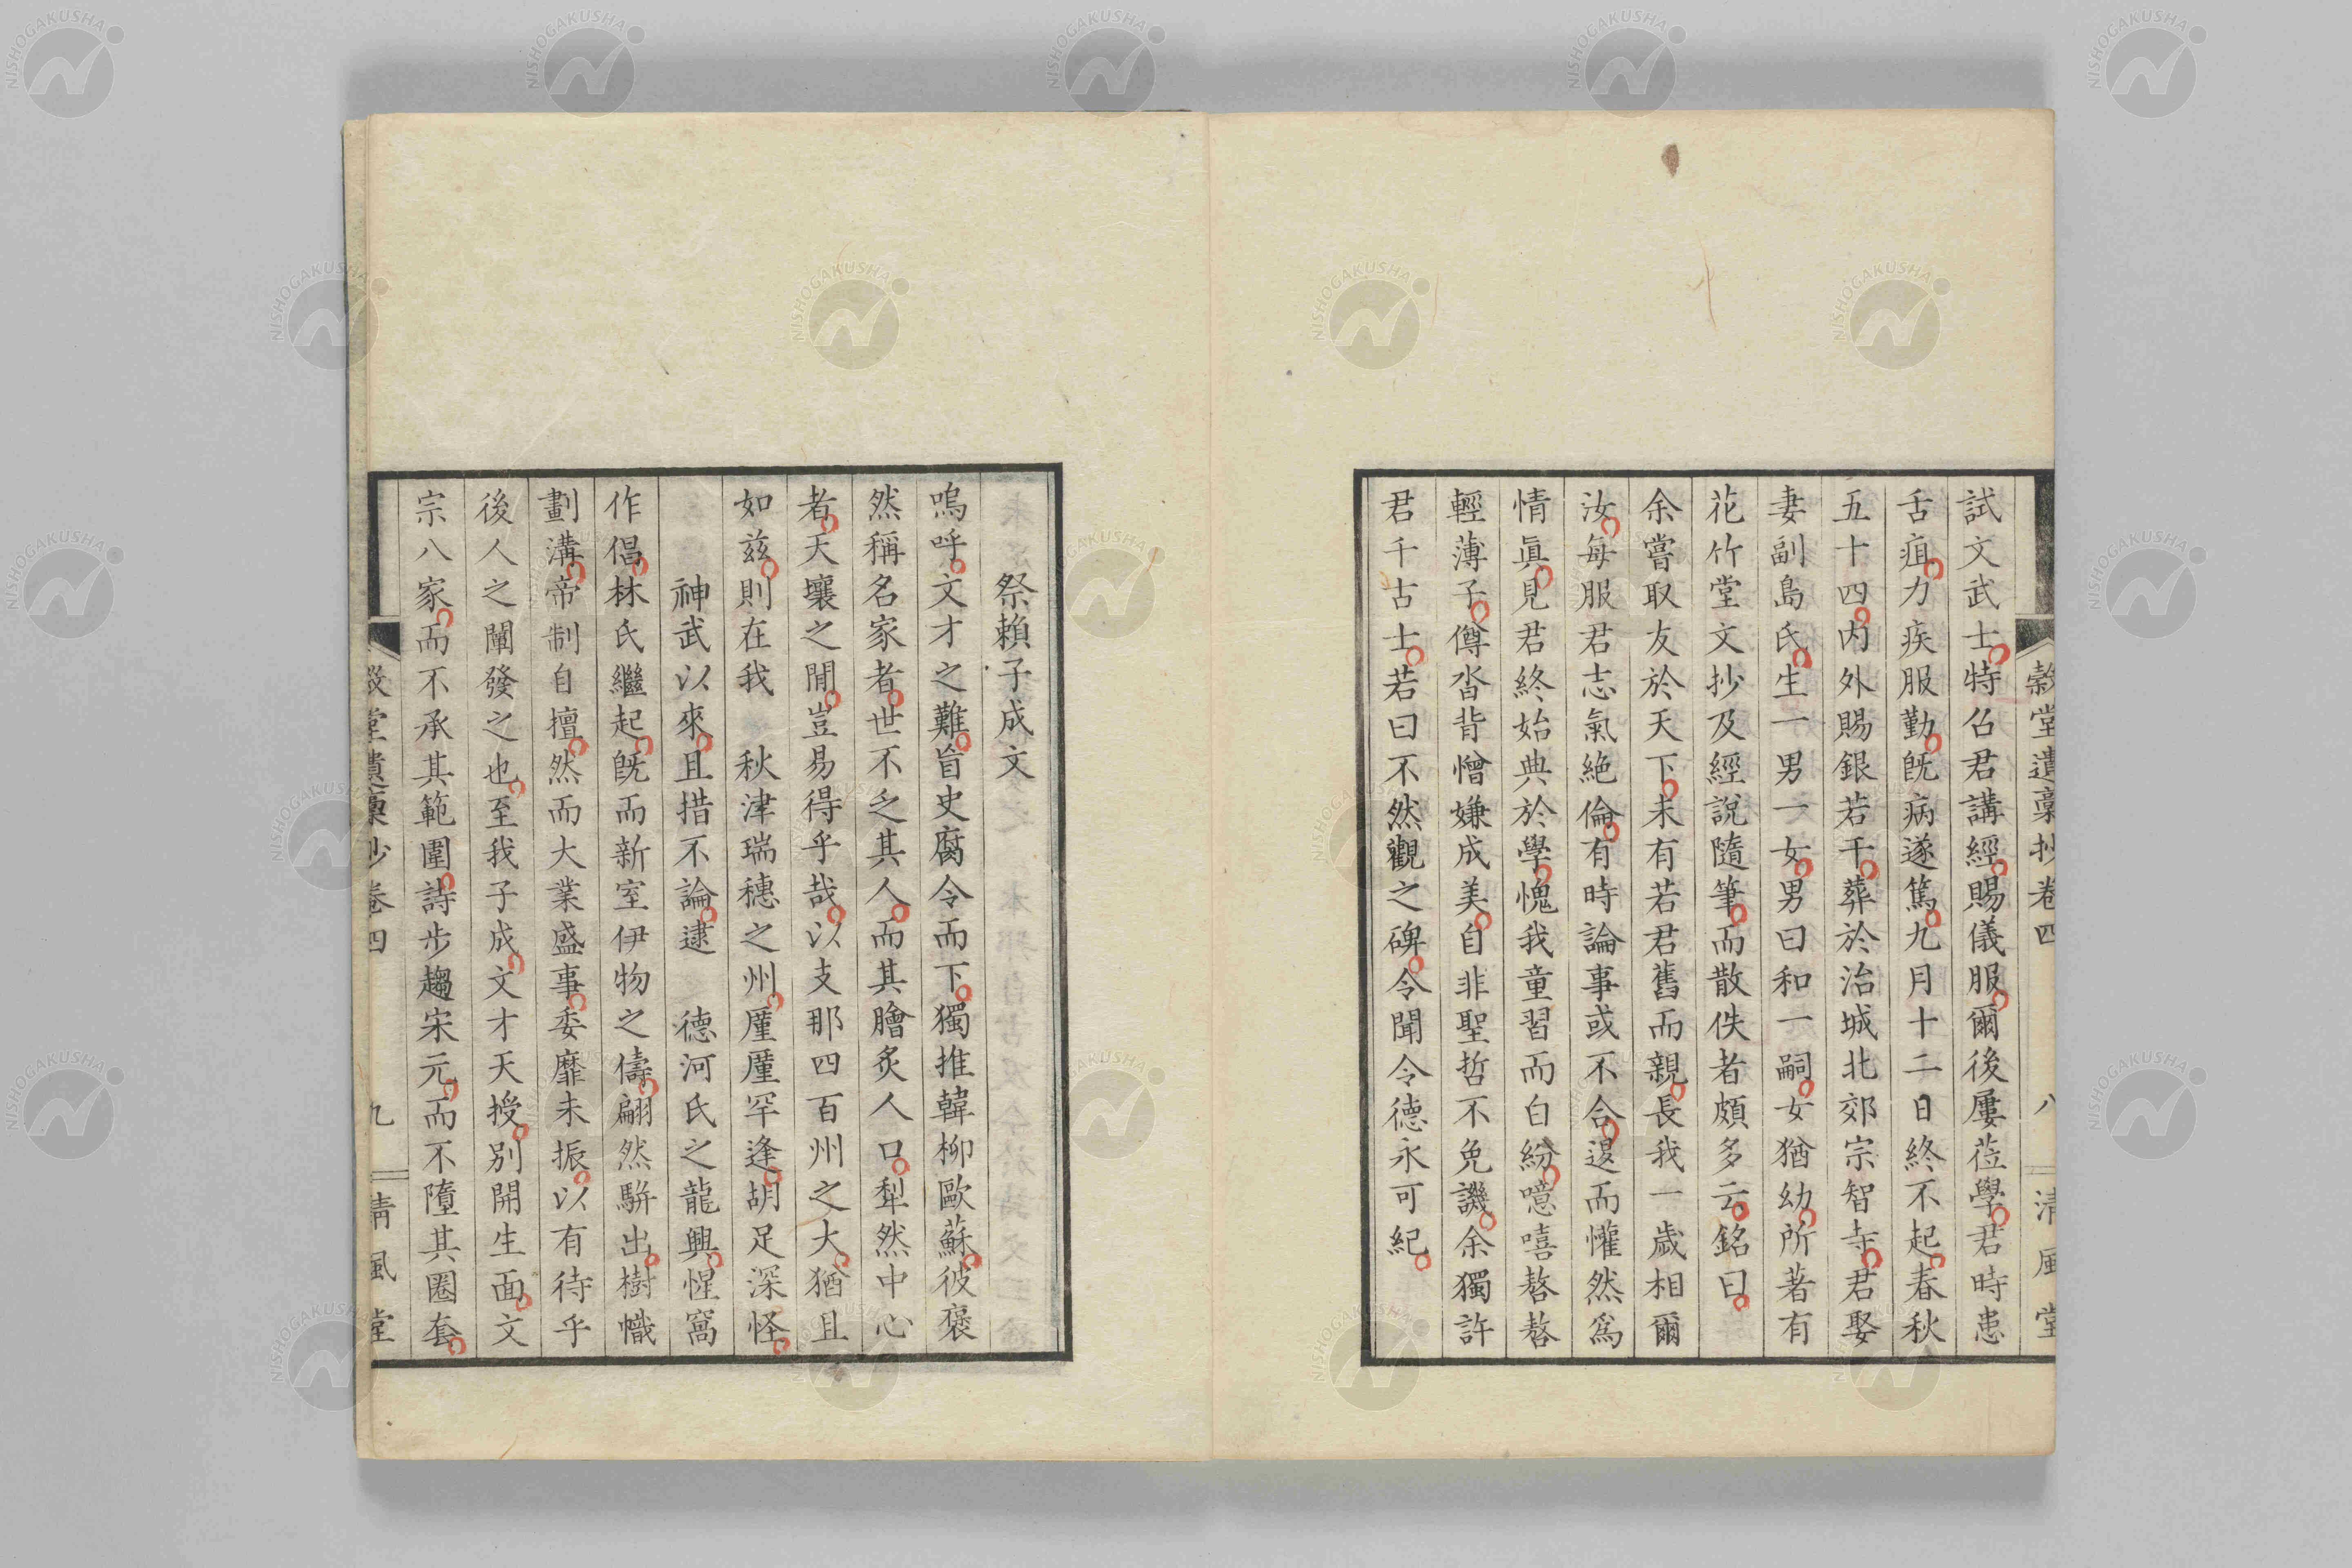 穀堂遺稾抄卷四 八 清風堂
試文武士特召君講經賜儀服爾後屢莅學君時患
舌疽力疾服勤旣病遂篤九月十二日終不起春秋
五十四內外賜銀若干葬於治城北郊宗智寺君娶
妻副島氏生一男一女男曰和一嗣女猶幼所著有
花竹堂文抄及經說隨筆而散佚者頗多云銘曰
余嘗取友於天下未有若君舊而親長我一歲相爾
汝每服君志氣絶倫有時論事或不合退而懽然爲
情眞見君終始典於學愧我童習而白紛噫嘻嗸嗸
輕薄子僔沓背憎嫌成美自非聖哲不免譏余獨許
君千古士若曰不然觀之碑令聞令德永可紀
祭賴子成文
嗚呼文才之難旨史腐令而下獨推韓柳歐蘇彼褒
然稱名家者世不乏其人而其膾炙人口犁然中心
者天壤之閒豈易得乎哉以支那四百州之大猶且
如茲則在我 秋津瑞穗之州厪厪罕逢胡足深怪
神武以來且措不論逮 德河氏之龍興惺窩
作倡林氏繼起旣而新室伊物之儔翩然駢出樹幟
劃溝帝制自擅然而大業盛事委靡未振以有待乎
後人之闡發之也至我子成文才天授別開生面文
宗八家而不承其範圍詩步趨宋元而不墮其圈套
穀堂遺稾抄卷四 九 清風堂
NISHOGAKUSHA